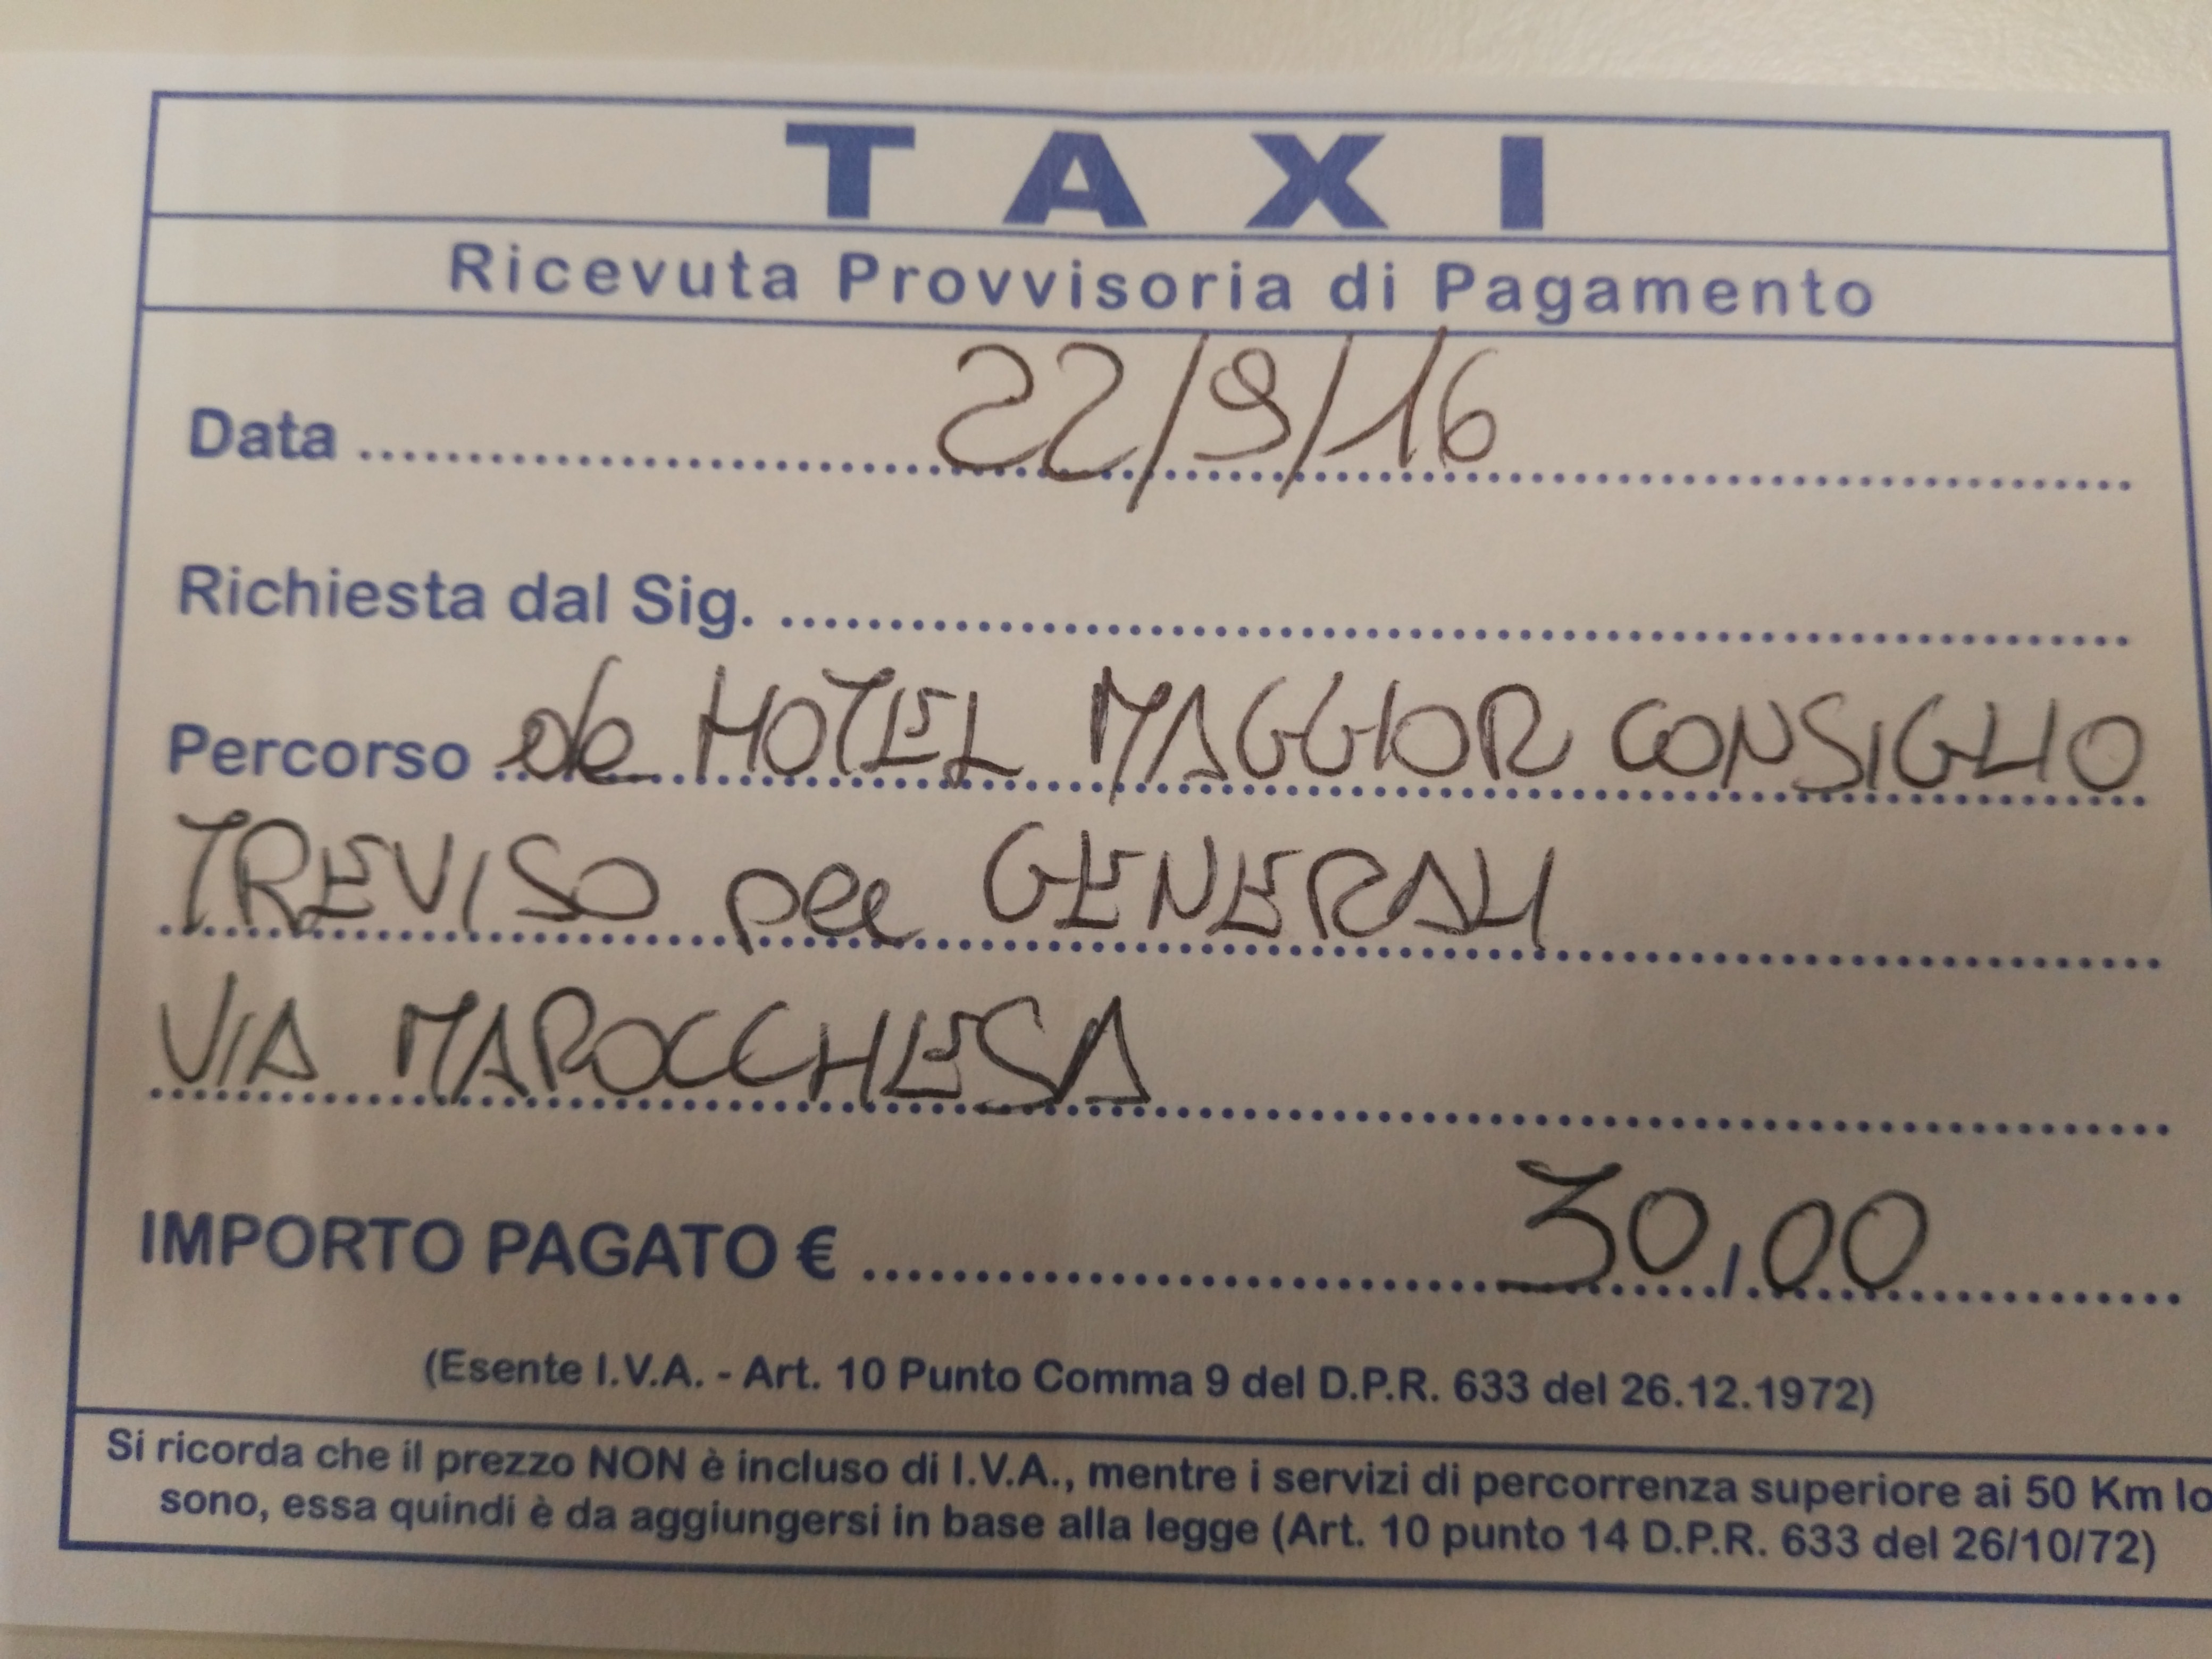 TAXI
Ricevuta Provvisoria di Pagamento
Data 22/9/16
Richiesta dal Sig.
Percorso da HOTEL MAGGIOR CONSIGLIO
TREVISO per GENERALI
VIA MAROCCHESA
IMPORTO PAGATO € 30,00
(Esente I.V.A. - Art. 10 Punto Comma 9 del D.P.R. 633 del 26.12.1972)
Si ricorda che il prezzo NON è incluso di I.V.A., mentre i servizi di percorrenza superiore ai 50 Km lo
sono, essa quindi è da aggiungersi in base alla legge (Art. 10 punto 14 D.P.R. 633 del 26/10/72)